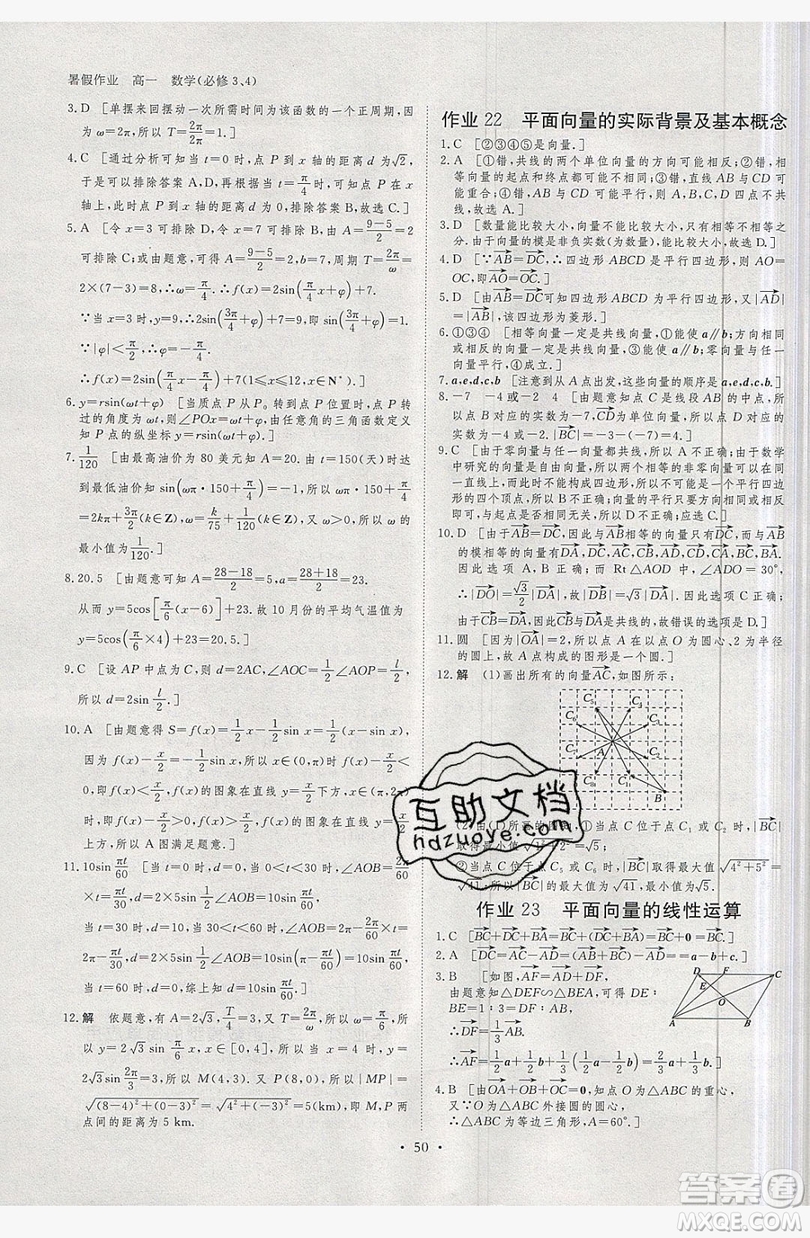 暑假作业 高一 数学(必修3、4)
3.D [单摆来回摆动一次所需时间为该函数的一个正周期,因
为ω=2π,所以T=2π/2π=1.]
4.C [通过分析可知当t=0时,点P到x轴的距离d为√2,
于是可以排除答案A,D,再根据当t=π/4时,可知点P在x
轴上,此时点P到x轴的距离d为0,排除答案B,故选C.]
5.A [令x=3可排除D,令x=7可排除B,由A=(9-5)/2=
2可排除C;或由题意,可得A=(9-5)/2=2,b=7,周期T=2π/ω=
2×(7-3)=8,∴ω=π/4.∴f(x)=2sin(π/4x+φ)+7.
∵当x=3时,y=9,∴2sin(3π/4+φ)+7=9,即sin(3π/4+φ)=1.
∵|φ|<π/2,∴φ=-π/4.
∴f(x)=2sin(π/4x-π/4)+7(1≤x≤12,x∈N*).]
6.y=rsin(ωt+φ) [当质点P从P₀转到点P位置时,点P转
过的角度为ωt,则∠POx=ωt+φ,由任意角的三角函数定义
知P点的纵坐标y=rsin(ωt+φ).]
7.1/120 [由最高油价为80美元知A=20.由t=150(天)时达
到最低油价,知sin(ωπ·150+π/4)=-1,所以ωπ·150+π/4
=2kπ+3π/2(k∈Z),ω=k/75+1/120(k∈Z),又ω>0,所以ω的
最小值为1/120.]
8.20.5 [由题意得a=(28+18)/2=23,A=(28-18)/2=5,
从而y=5cos[π/6(x-6)]+23.故10月份的平均气温值为
y=5cos(π/6×4)+23=20.5.]
9.C [设AP中点为C,则d=2AC,∠AOC=1/2∠AOP=l/2,
所以d=2sin l/2.]
10.A [由题意得S=f(x)=1/2x-1/2sin x=x/2-1/2sin x.
因为f(x)-x/2=-1/2sin x,所以当x∈[0,π]时,f(x)-x/2
≤0,即f(x)≤x/2,f(x)的图象在直线y=x/2下方,当x∈
(π,2π)时,f(x)-x/2>0,f(x)>x/2,f(x)的图象在直线
y=x/2上方,所以A图满足题意.]
11.10sin πt/60 [当0<t<30时,∠AOB=πt/60×2,所以1/2d=
5sin πt/60,所以d=10sin πt/60;当30<t<60时,1/2∠AOB=
π-πt/60,所以1/2d=5sin(π-πt/60)=5sin πt/60,所以d=
10sin πt/60.当t=0或30或60时也满足关系式d=
10sin πt/60,综上可知d=10sin πt/60.]
12.解 依题意,有A=2√3,T/4=3,又T=2π/ω,所以ω=π/6.所
以y=2√3sin π/6x,x∈[0,4],所以当x=4时,y=
2√3sin 2π/3=3,所以M(4,3).又P(8,0),所以|MP|=
√((8-4)²+(0-3)²)=√(4²+3²)=5(km),即M,P两
点间的距离为5 km.
作业22 平面向量的实际背景及基本概念
1.C [②③④⑤是向量.]
2.A [①错,共线的两个单位向量的方向可能相反;②错,相
等向量的起点和终点都可能不相同;③错,直线AB与CD可
能重合;④错,AB与CD可能平行,则A,B,C,D四点不共
线,故选A.]
3.D [数量能比较大小,向量不能比较大小,故A,B均不成
立.由于向量的模是非负实数(为数量),可比较大小.]
4.D [∵AB=DC,∴四边形ABCD是平行四边形,则AO=
OC.∴AO=OC.]
5.D [由AB=DC可知四边形ABCD为平行四边形,又|AD|
=|AB|,故该四边形为菱形.]
6.①③④ [相等向量一定是共线向量,①能使a∥b;方向相同
或相反的向量一定是共线向量,③能使a∥b;零向量与任一
向量平行,④成立.]
7.a,e,d,c,b [注意到从A点出发,这些向量的方向和长度.]
8.-7 -4或-2 4 [由题意知线段AB的中点为C,所
以点B对应的实数为-7,CD为单位向量,所以点D对应的
实数为-4或-2.|BC|=-3-(-7)=4.]
9.C [由于零向量与任一向量都共线,所以A不正确;由于数学
中研究的向量是自由向量,所以两个相等的非零向量可以在同
一直线上,而此时就构不成四边形,所以不可能是一个平行四
边形的四个顶点,所以B不正确;向量的平行只要方向相同或
相反,与起点是否相同无关,所以D不正确.]
10.D [由于AB=DC,因此与AB相等的向量只有DC,而与
AB的模相等的向量有DA,DC,AC,CB,AD,CD,CA,BC,
BA,因此选项A,B正确;而Rt△AOD中,∠ADO=30°,所
以|DO|=√3/2|DA|,故|DB|=√3|DA|,因此选项C正确;
由于CB=DA,因此CB与DA是共线的,故错误的选项是D.]
11.圆 [因为|OA|=2,所以点A在以点O为圆心、2为半径
的圆上,故点A构成的图形是一个圆.]
12.解 (1)画出所有的向量AC,如图所示:
A
B
(2)由(1)所画的图知,①当点C位于点C₁或C₂时,|BC|
取得最小值
②当点C位于点C₅或C₆时,|BC|取得最大值√(4²+5²)=
√41,所以|BC|的最大值为√41,最小值为√5.
作业23 平面向量的线性运算
1.C [BC+DC+BA=BC+(DC+BA)=BC+0=BC.]
2.A [DC=AC-AD=AB+BC-AD=a-b+c.]
3.B [如图,AF=AD+DF,
由题意知△DEF∽△BEA,∴DE:
BE=1:3=DF:AB,
∴DF=1/3AB.
∴AF=1/2a+1/2b+1/3(1/2a-1/2b)=2/3a+1/3b.]
D F C
E
A B
4.B [由OA+OB+OC=0,知点O为△ABC的重心,
又∵O为△ABC外接圆的圆心,
∴△ABC为等边三角形,A=60°.]
• 50 •
互助文档
hdzuoye.com
答案圈
MXQE.COM